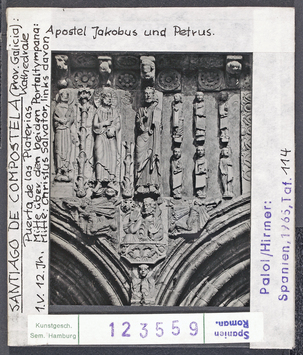 Apostel Jakobus und Petrus.
SANTIAGO DE COMPOSTELA (Prov. Galicia):
Kathedrale
Puerta de las Platerias
Mitte über den beiden Portaltympana:
Mitte: Christus Salvator, links davon
1. V. 12. Jh.
Palol/Hirmer:
Spanien, 1965, Taf. 114
Kunstgesch.
Sem. Hamburg
123559
Spanien
Roman.